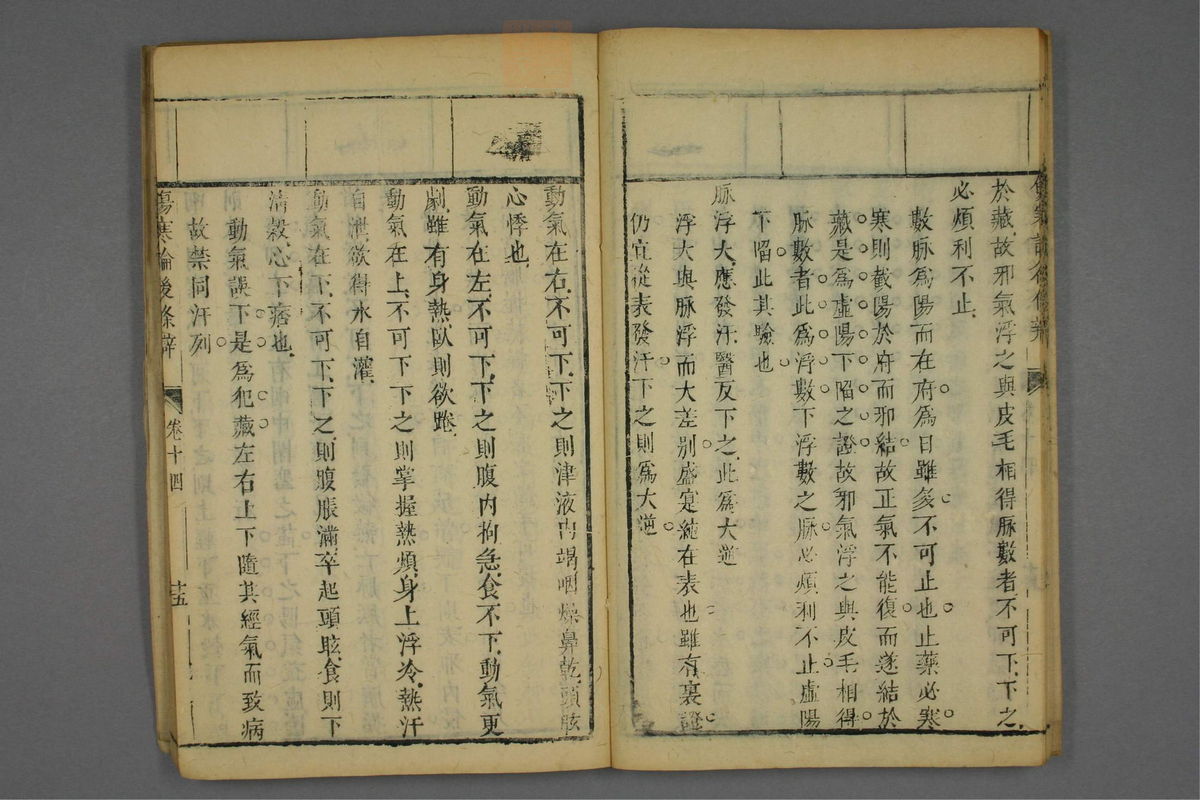 於藏故邪氣浮之與皮毛相得脉數者不可下下之
必煩利不止
數脉爲陽而在府爲日雖多不可止也止藥必寒
寒則截陽於府而邪結故正氣不能復而遂結於
藏是爲虛陽下陷之證故邪氣浮之與皮毛相得
脉數者此爲浮數下浮數之脉必煩利不止虛陽
下陷此其驗也
脉浮大應發汗醫反下之此爲大逆
浮大與脉浮而大差別盛寔純在表也雖有裏證
仍宜從表發汗下之則爲大逆
動氣在右不可下下之則津液內竭咽燥鼻乾頭眩
心悸也
動氣在左不可下下之則腹内拘急食不下動氣更
劇雖有身熱臥則欲踡
動氣在上不可下下之則掌握熱煩身上浮冷熱汗
自泄欲得水自灌
動氣在下不可下下之則腹脹滿卒起頭眩食則下
清穀心下痞也
動氣誤下是爲犯藏左右上下隨其經氣而致病
故禁同汗列
傷寒論後條辯 卷十四 十五